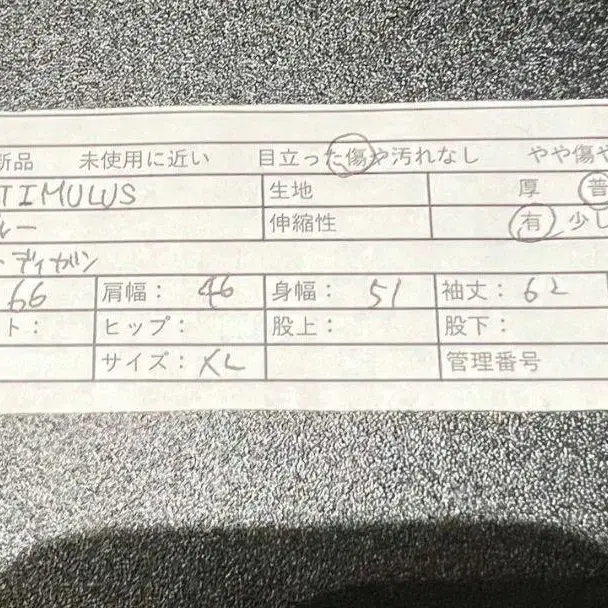 新品 未使用に近い 目立った傷や汚れなし やや傷や
TIMULUS 生地 厚 普
ルー 伸縮性 有 少し
ーディガン
66 肩幅: 46 身幅: 51 袖丈: 62
ト: ヒップ: 股上: 股下:
サイズ: XL 管理番号